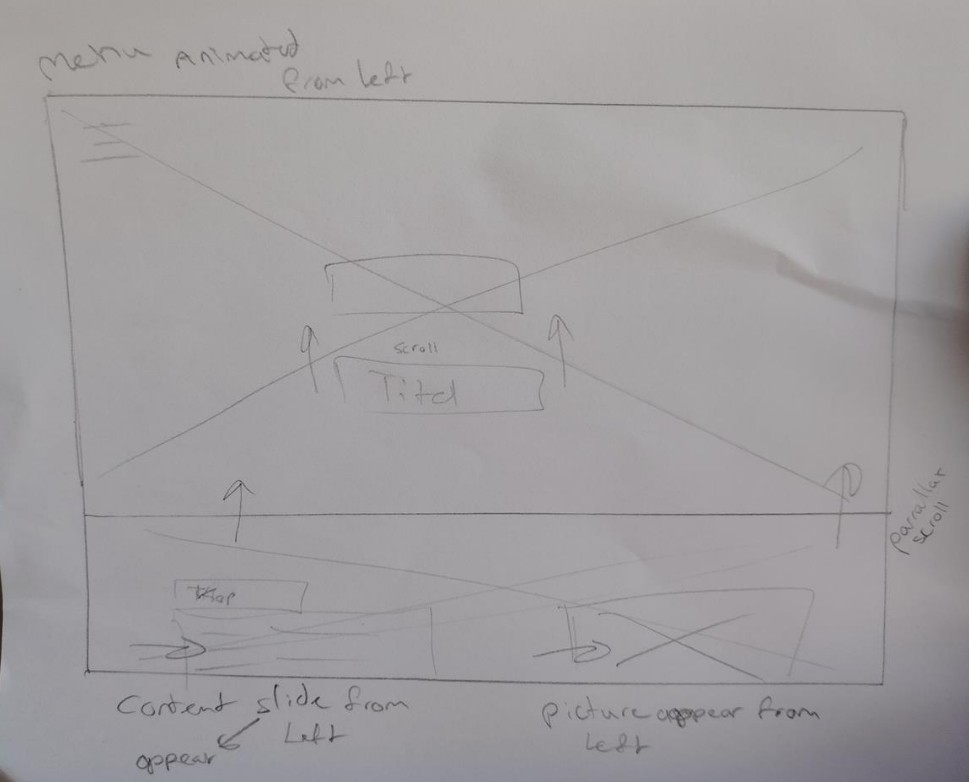 Menu Animated
from left
scroll
Titel
parallax
scroll
Kop
Content slide from
Left
appear
picture appear from
Left